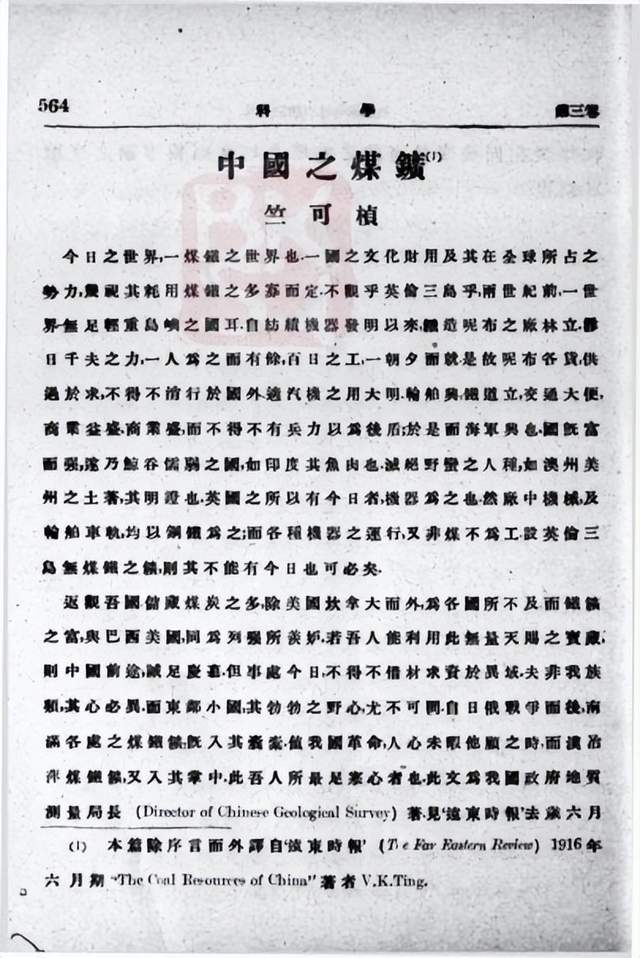 564 科學 第三卷
中國之煤鑛(1)
竺可楨
今日之世界,一煤鐵之世界也.一國之文化財用及其在全球所占之
勢力,幾視其耗用煤鐵之多寡而定.不觀乎英倫三島乎,兩世紀前,一世
界無足輕重島嶼之國耳.自紡績機器發明以來,織造呢布之廠林立.昔
日千夫之力,一人爲之而有餘,百日之工,一朝夕而就.是故呢布各貨,供
過於求,不得不消行於國外.適汽機之用大明.輪舶興,鐵道立,交通大便,
商業益盛.商業盛,而不得不有兵力以爲後盾;於是而海軍興也.國旣富
而强,遂乃鯨吞儒弱之國,如印度其魚肉也.滅絕野蠻之人種,如澳州美
州之土著,其明證也.英國之所以有今日者,機器爲之也.然廠中機械,及
輪舶車軌,均以鋼鐵爲之;而各種機器之運行,又非煤不爲工.設英倫三
島無煤鐵之鑛,則其不能有今日也可必矣.
返觀吾國儲藏煤炭之多,除美國坎拿大而外,爲各國所不及而鐵鑛
之富,與巴西美國,同爲列强所羨妒.若吾人能利用此無量天賜之寶藏,
則中國前途,誠足慶幸.但事處今日,不得不借材求資於異域.夫非我族
類,其心必異.而東鄰小國,其勃勃之野心,尤不可問.自日俄戰爭而後,南
滿各處之煤鐵鑛,旣入其囊橐.値我國革命,人心未暇他顧之時,而漢冶
萍煤鐵鑛,又入其掌中.此吾人所最足寒心者也.此文爲我國政府地質
測量局長 (Director of Chinese Geological Survey) 著.見'遠東時報'去歲六月
(1) 本篇除序言而外譯自'遠東時報' (The Far Eastern Review) 1916年
六月期 "The Coal Resources of China" 著者 V.K.Ting.